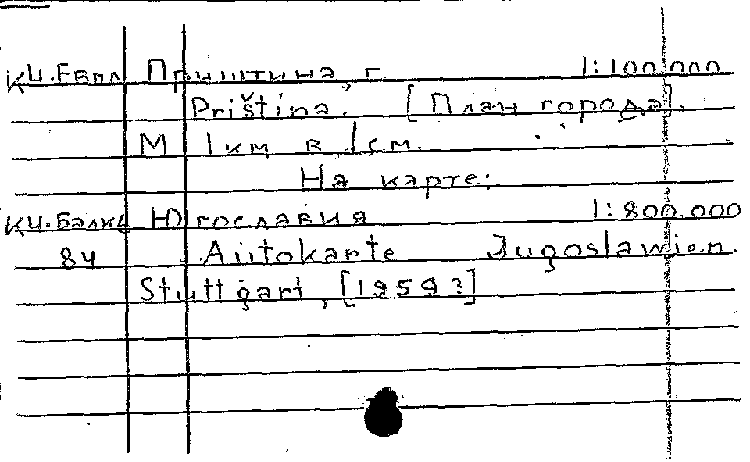 КЧ-Евпл Приштина, г. 1:100.000
Priština. [План города].
М 1км в 1см.
На карте:
КЧ-Балк Югославия 1:800.000
84 Autokarte Jugoslawien.
Stuttgart, [1959?]